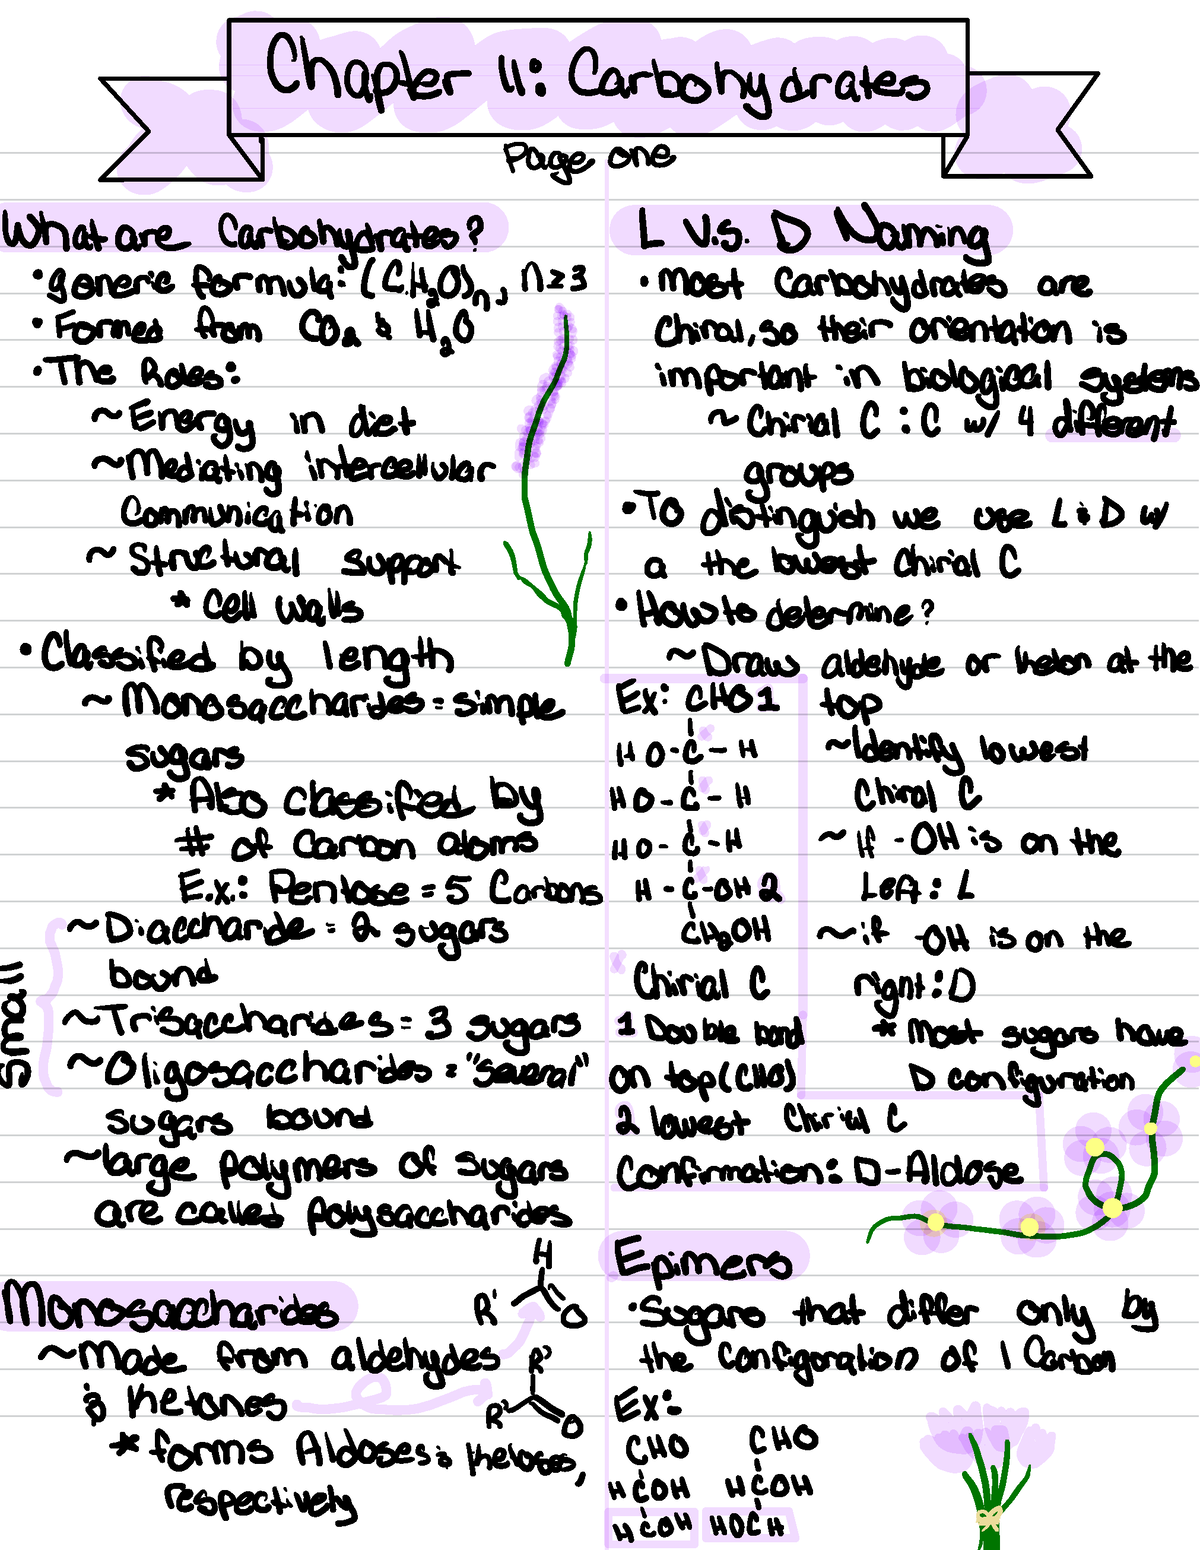 Chapter 11: Carbohydrates
Page one
What are Carbohydrates?
• generic formula: (CH₂O)n, n≥3
• Formed from CO₂ & H₂O
• The Roles:
~ Energy in diet
~ Mediating intercellular
Communication
~ Structural support
* Cell walls
• Classified by length
~ Monosaccharides = simple
sugars
* Also classified by
# of Carbon atoms
E.x.: Pentose = 5 Carbons
Small
~ Diaccharide = 2 sugars
bound
~ Trisaccharides = 3 sugars
~ Oligosaccharides = "several"
sugars bound
~ large polymers of sugars
are called polysaccharides
Monosaccharides
~ Made from aldehydes
& Ketones
* forms Aldoses & Ketoses,
respectively
H
R' O
R'
R' O
L V.S. D Naming
• Most Carbohydrates are
Chiral, so their orientation is
important in biological systems
~ Chirial C : C w/ 4 different
groups
• To distinguish we use L & D w/
a the lowest Chiral C
• How to determine?
~ Draw aldehyde or keton at the
top
~ Identify lowest
Chiral C
~ If -OH is on the
Left: L
~ if -OH is on the
right: D
* Most sugars have
D configuration
Ex: CHO 1
HO-C-H
HO-C-H
HO-C-H
H-C-OH 2
CH₂OH
Chirial C
1 Double bond
on top (CHO)
2 lowest Chirial C
Confirmation: D-Aldose
Epimers
• Sugars that differ only by
the configoration of 1 Carbon
Ex:
CHO CHO
HCOH HCOH
HCOH HOCH